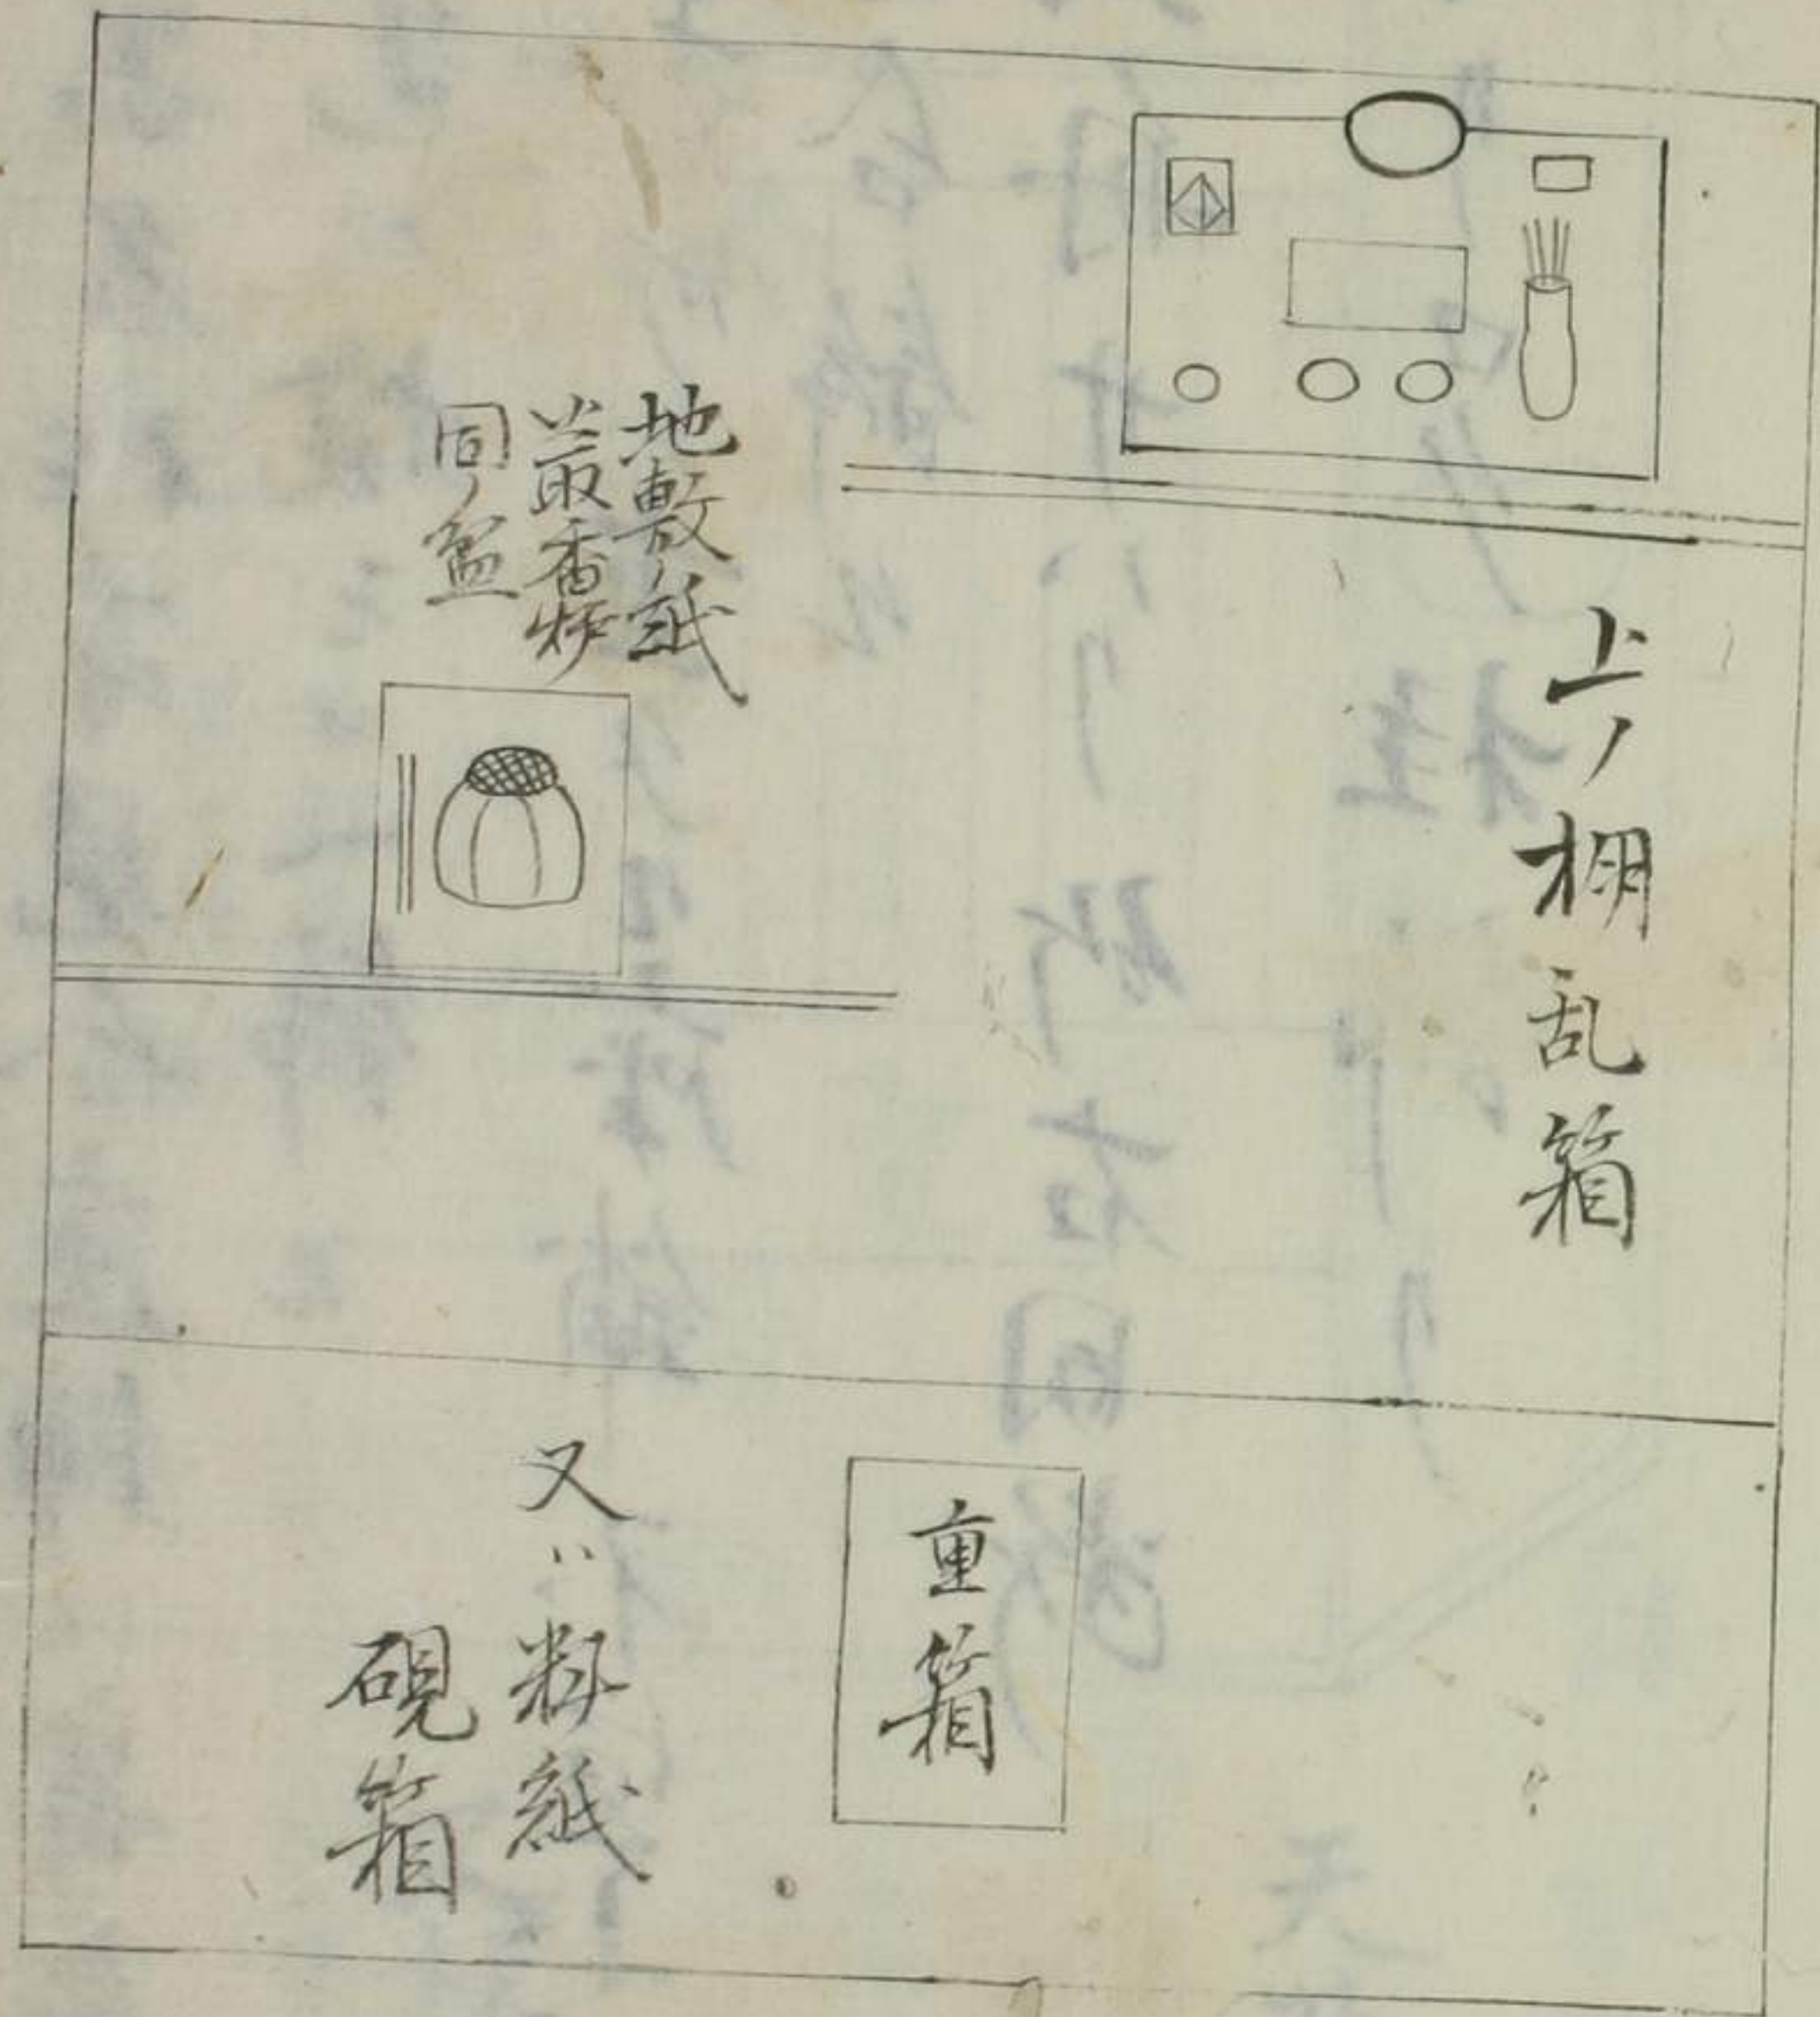 上ノ棚乱箱
地敷ノ紙
並取香炉
同ノ盆
重箱
又ハ料紙
硯箱